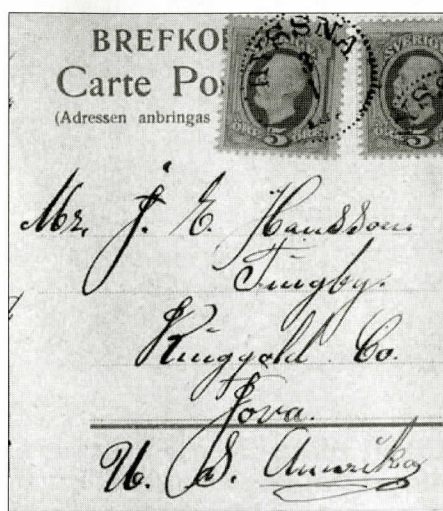 BREFKO
Carte Po
(Adressen anbringas
SVERIGE
5
5
Mr. J. E. Hansson.
Tingby.
Ringgold Co.
Iova.
U. S. Amerika